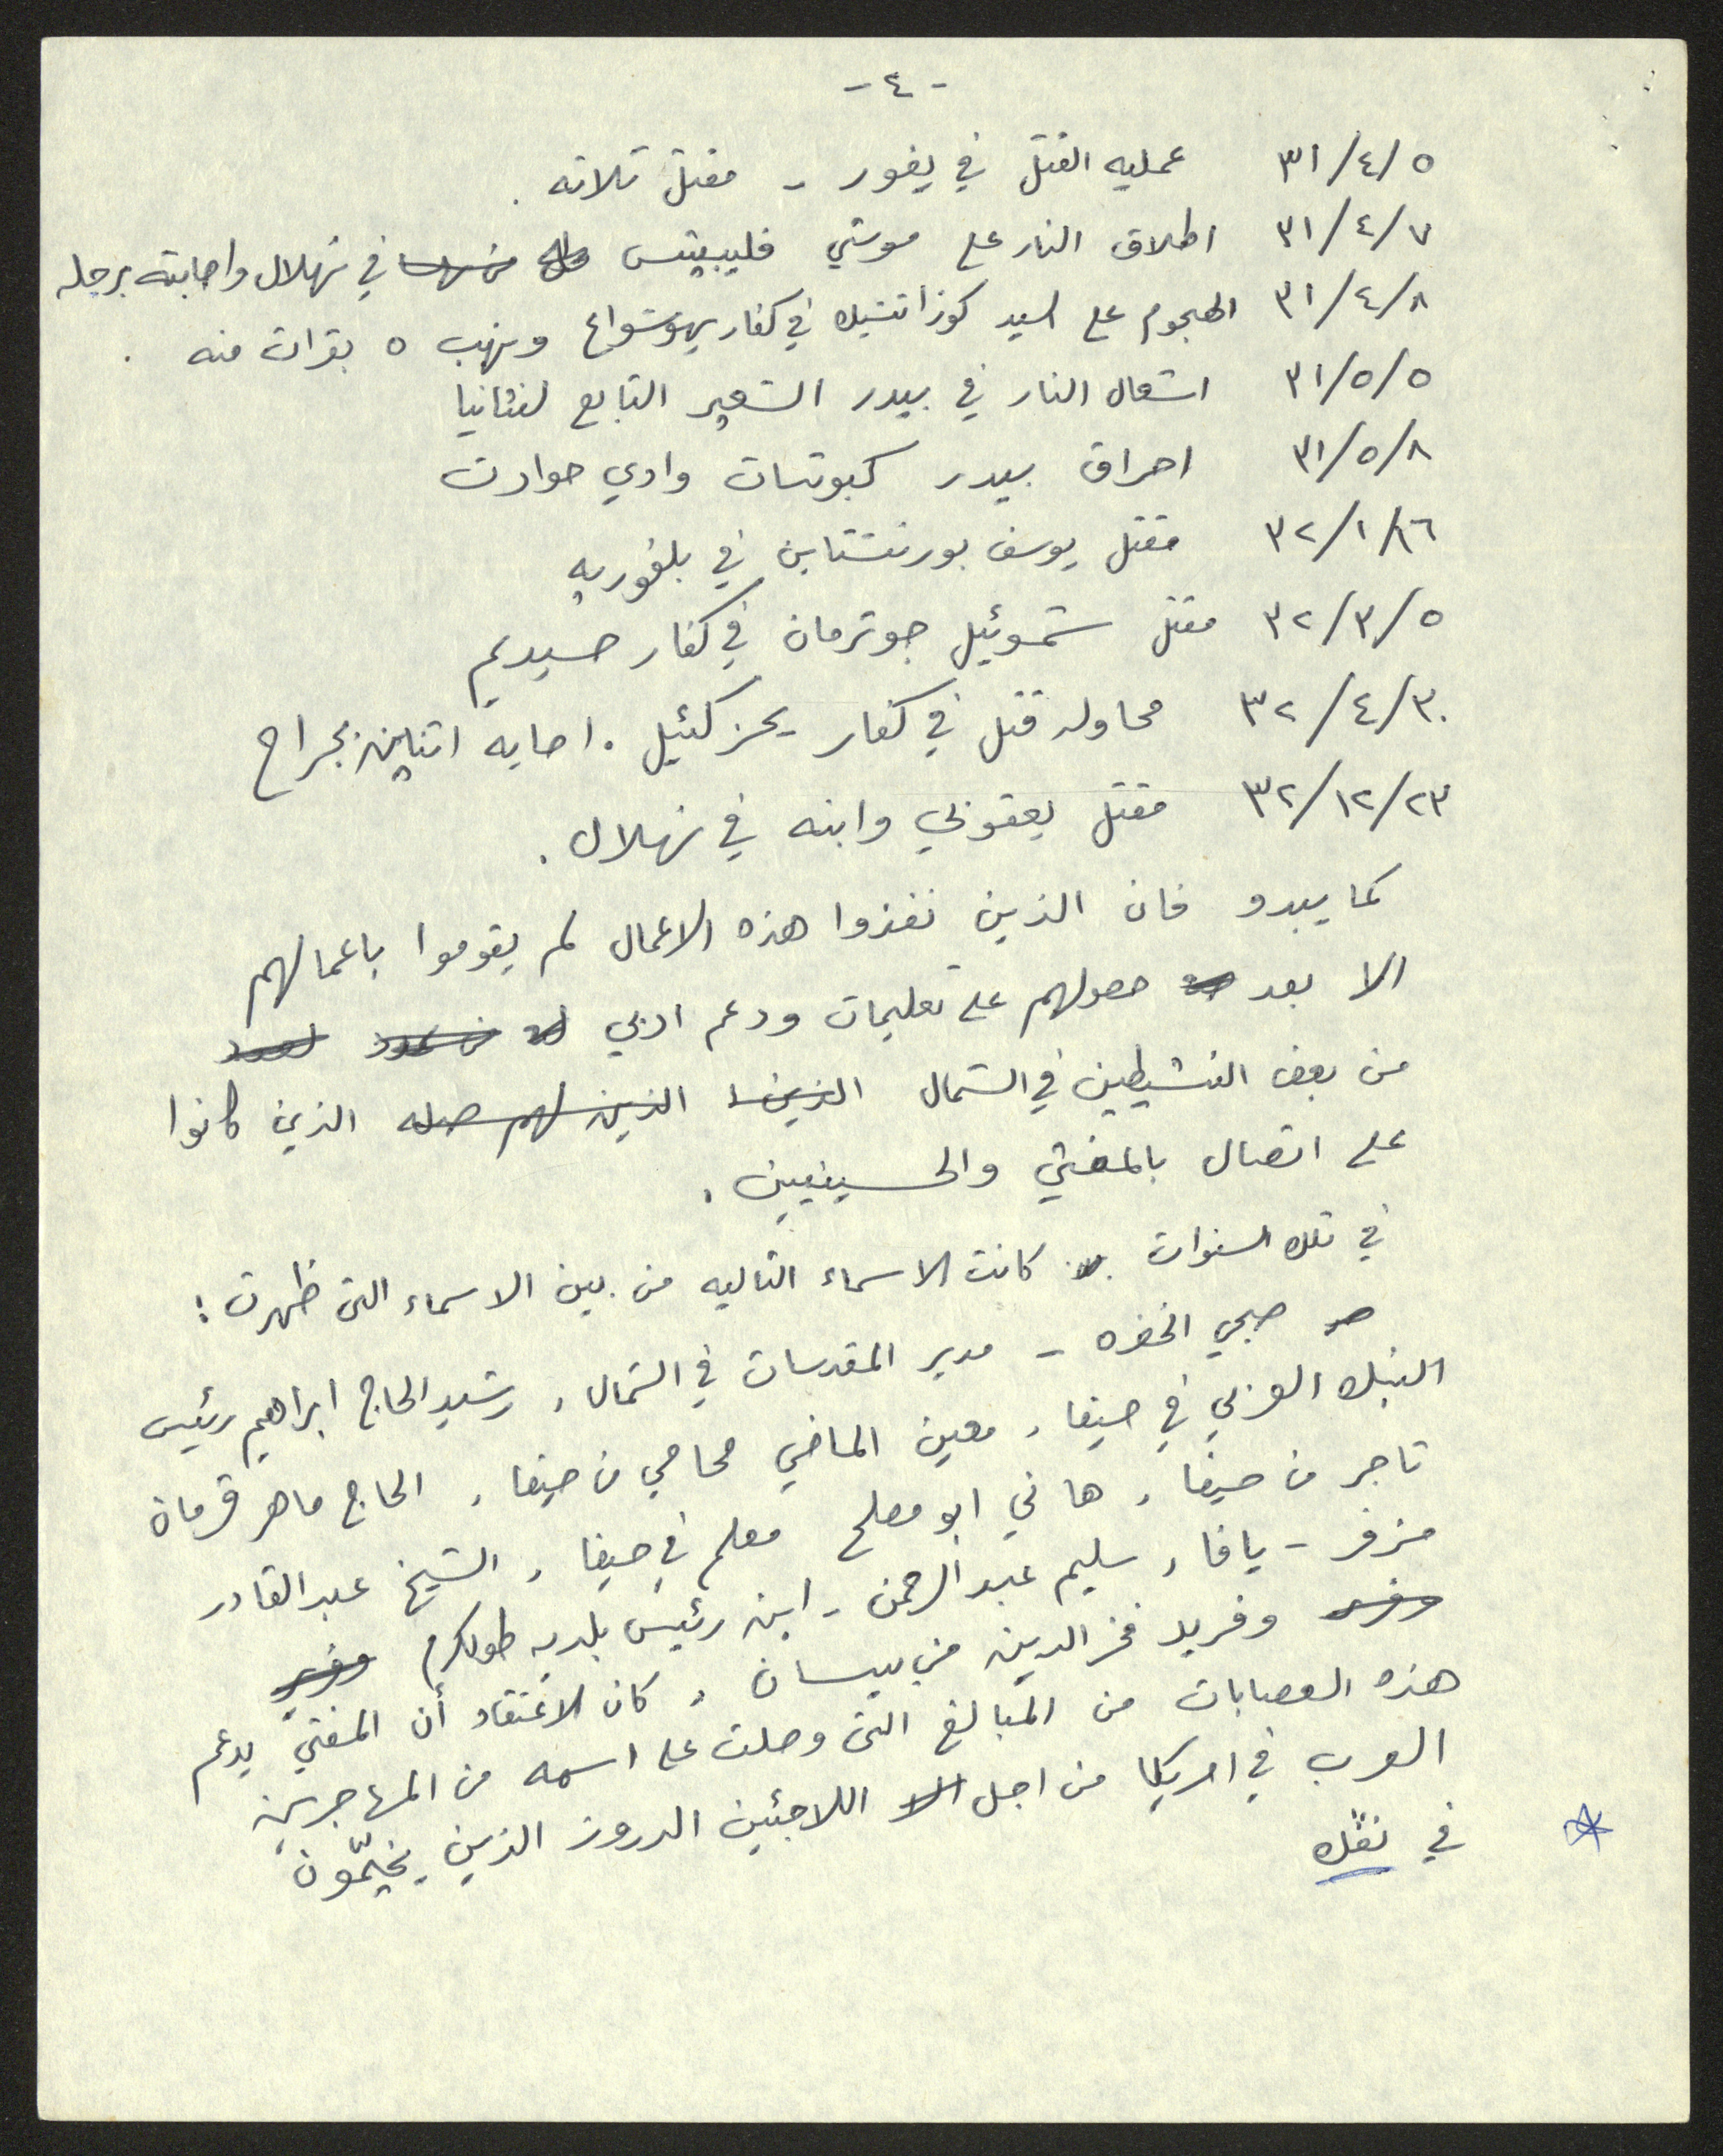 - ٤ -
٣١/٤/٥ عمليه القتل في يفور - مقتل ثلاثه .
٣١/٤/٧ اطلاق النار على موشي فليبيتس في نهلال واصابته برجله
٣١/٤/٨ الهجوم على السيد كوزانتشيك في كفار يهوشواع ونهب ٥ بقرات منه .
٣١/٥/٥ اشعال النار في بيدر الشعير التابع لنتانيا
٣١/٥/٨ احراق بيدر كبوتسات وادي حوارث
٣٢/١/١٦ مقتل يوسف بورنشتاين في بلفوريه
٣٢/٣/٥ مقتل شموئيل جوترمان في كفار حسيديم
٣٢/٤/٣٠ محاوله قتل في كفار يحزكئيل . اصابه اثنين بجراح
٣٢/١٢/٢٣ مقتل يعقوبي وابنه في نهلال .
كما يبدو فان الذين نفذوا هذه الاعمال لم يقوموا باعمالهم
الا بعد حصولهم على تعليمات ودعم ادبي
من بعض النشيطين في الشمال الذين الذين لهم صله الذين كانوا
على اتصال بالمفتي والحسينيين .
في تلك السنوات كانت الاسماء التاليه من بين الاسماء التي ظهرت :
صبحي الخضره - مدير المقدسات في الشمال , رشيد الحاج ابراهيم رئيس
البنك العربي في حيفا , معين الماضي محامي من حيفا , الحاج ماهر قرمان
تاجر من حيفا , هاني ابو مصلح معلم في حيفا , الشيخ عبد القادر
مزفر - يافا , سليم عبد الرحمن - ابن رئيس بلديه طولكرم
وفريد فخر الدين من بيسان , كان الاعتقاد أن المفتي يدعم
هذه العصابات من المبالغ التي وصلت على اسمه من المهاجرين
العرب في امريكا من اجل اللاجئين الدروز الذين يخيّمون
في نقك